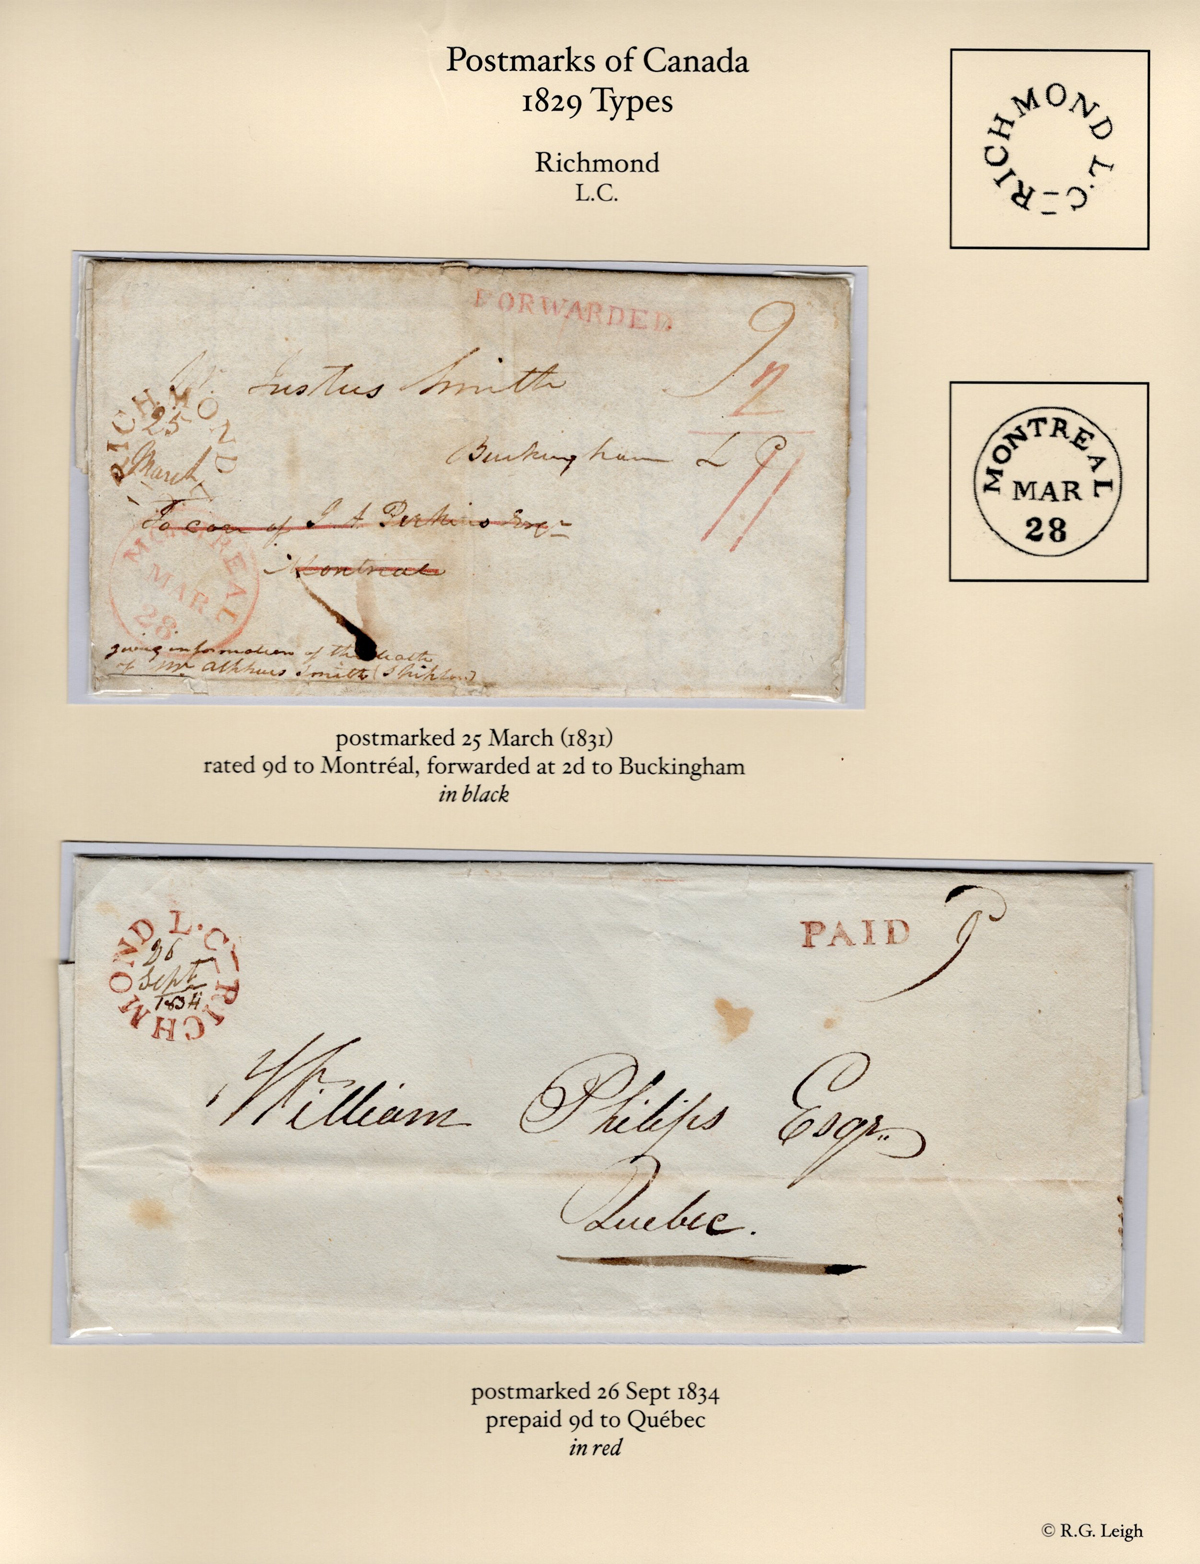 Postmarks of Canada
1829 Types
Richmond
L.C.
RICHMOND L.C.
MONTREAL
MAR
28
FORWARDED
9
2
Justus Smith
RICHMOND
25
March
Buckingham L C
11
To care of J A Perkins Esqr
Montreal
MONTREAL
MAR
28
giving information of the death
of Mr Smith (Shipton)
postmarked 25 March (1831)
rated 9d to Montréal, forwarded at 2d to Buckingham
in black
RICHMOND L.C.
26
Sept
1834
PAID
9
William Philips Esqr.
Quebec.
postmarked 26 Sept 1834
prepaid 9d to Québec
in red
© R.G. Leigh